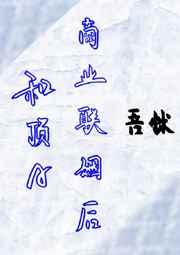 吾
商业联姻后
和顶A